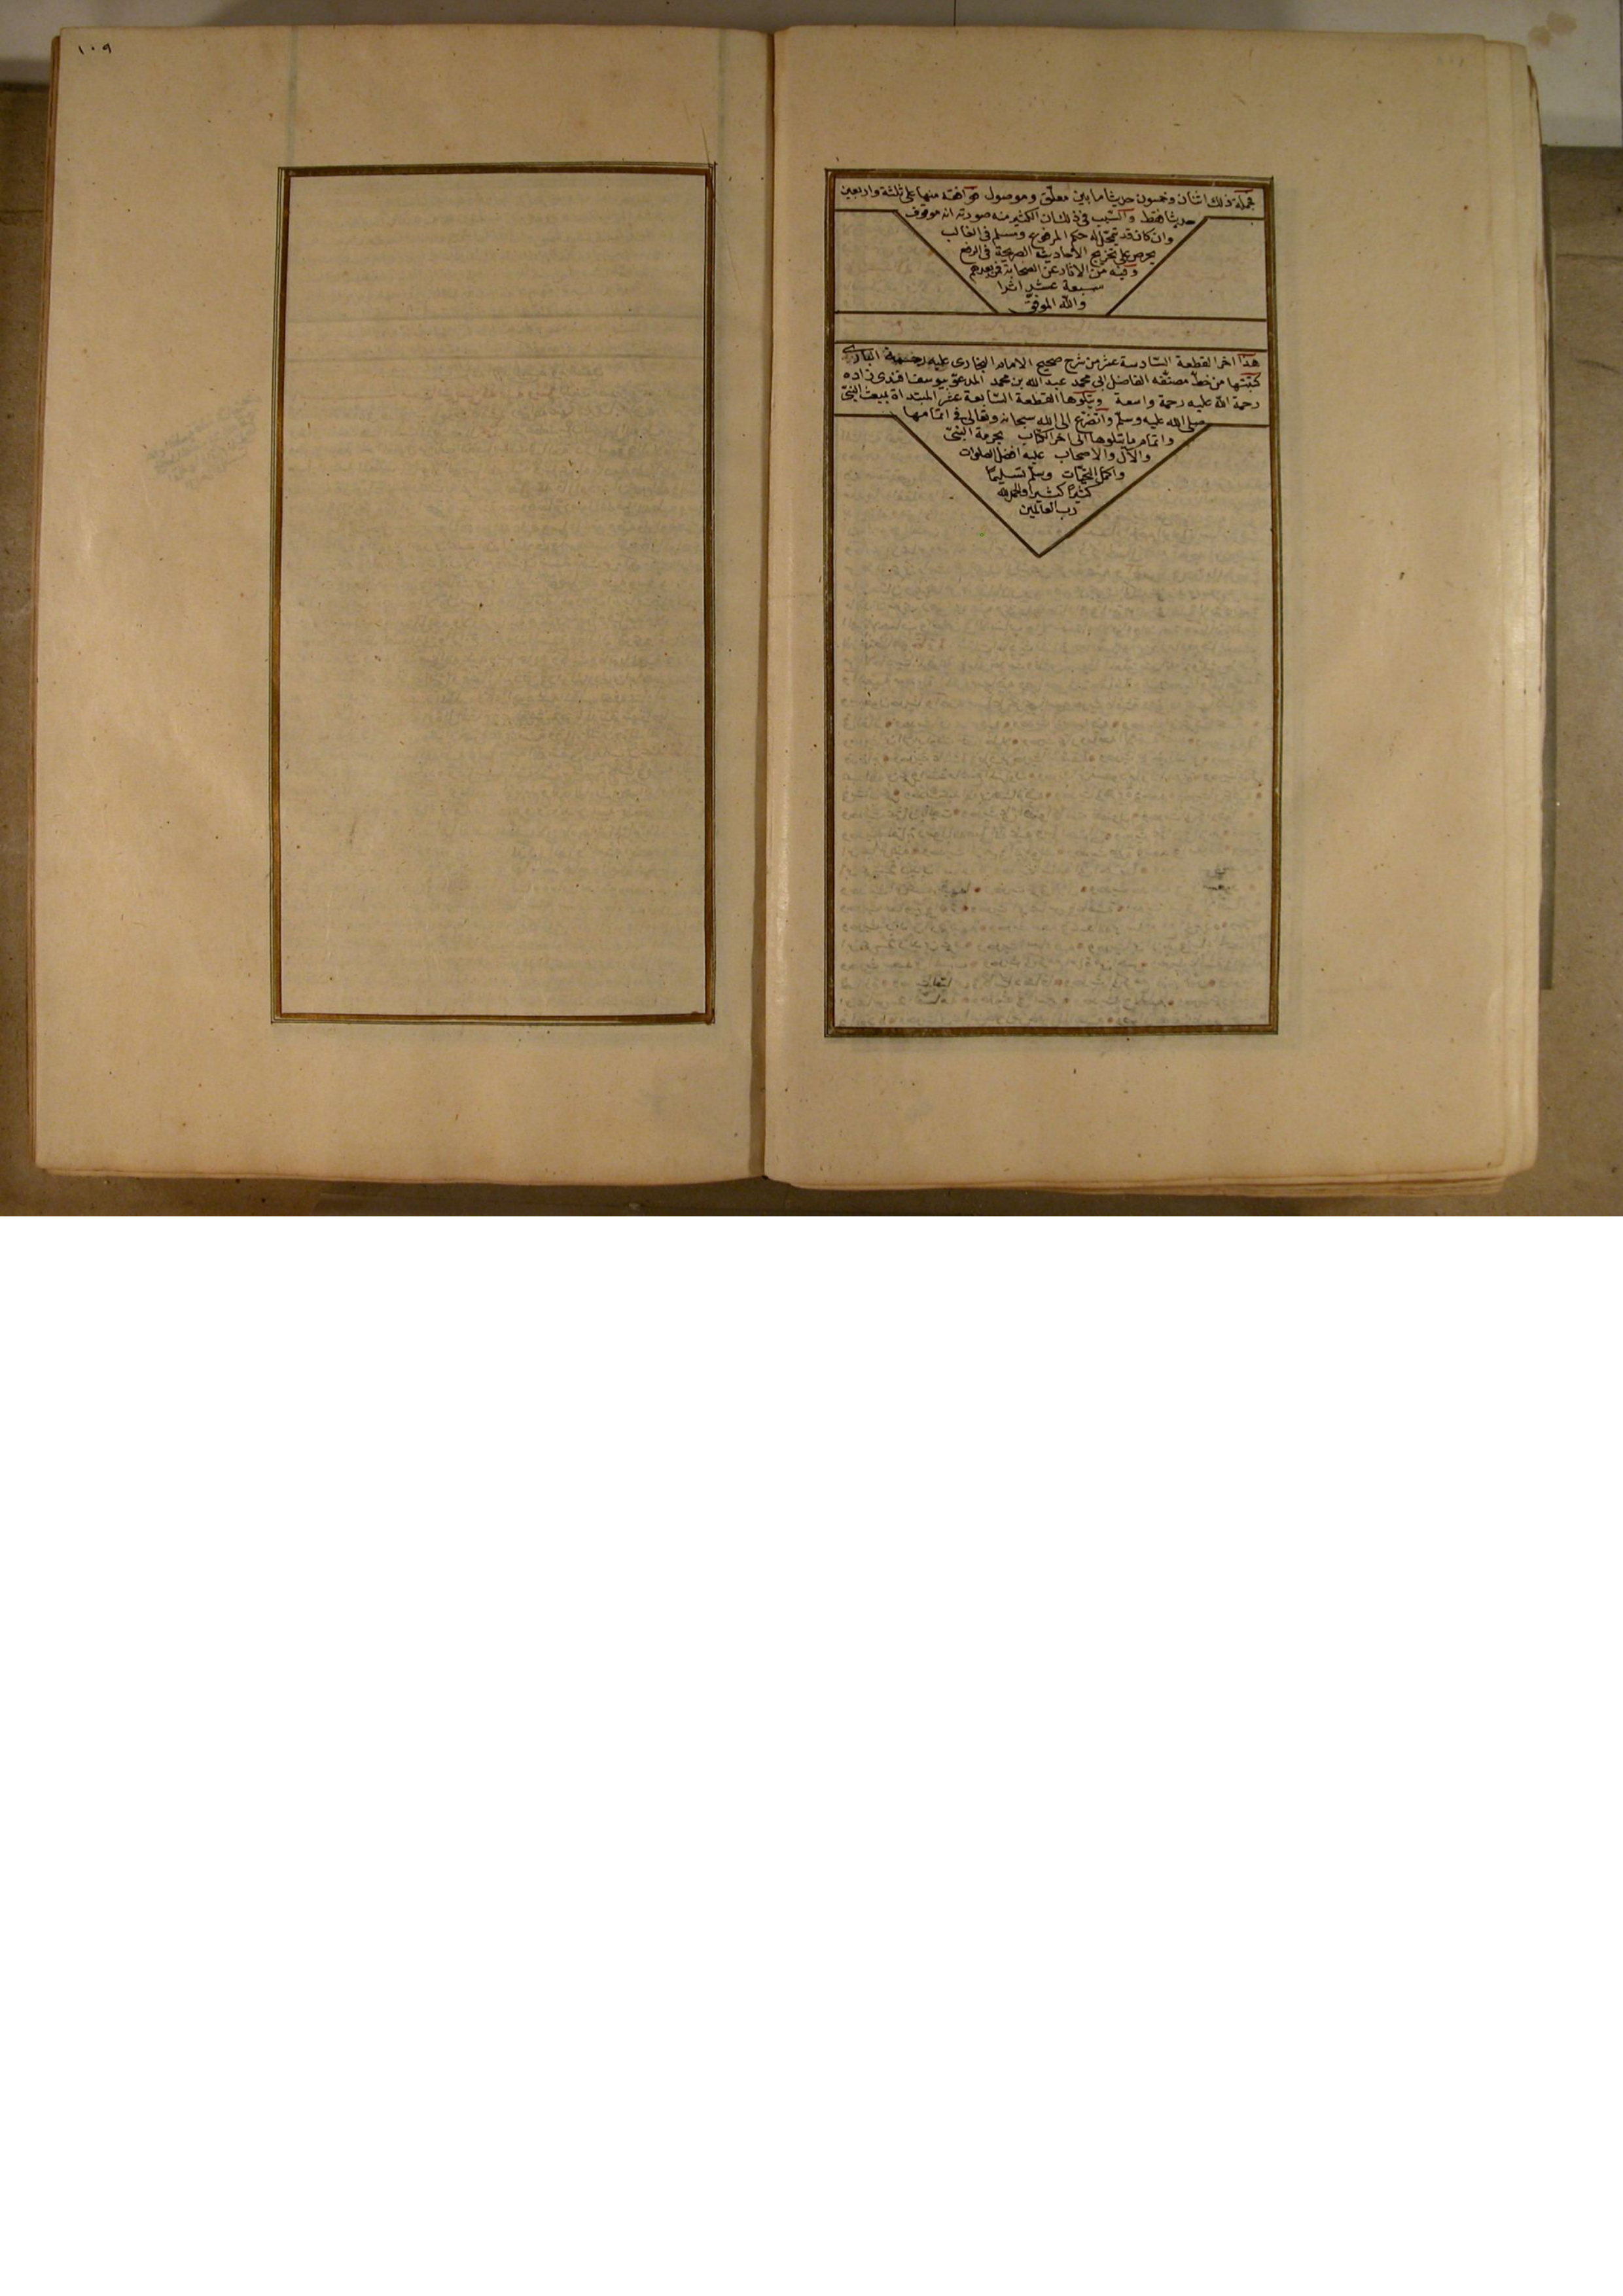 جملة ذلك اثنان وخمسون حديثا ما بين معلق وموصول وافقه منها على ثلثة واربعين
حديثا فقط والسبب في ذلك ان الكثير منه صورته انه موقوف
وان كان قد يتمحل له حكم المرفوع ومسلم في الغالب
يحرص على تخريج الاحاديث الصريحة في الرفع
وفيه من الآثار عن الصحابة فمن بعدهم
سبعة عشر اثرا
والله الموفق
هذا اخر القطعة السادسة عشر من شرح صحيح الامام البخارى عليه رحمة البارى
كتبتها من خط مصنفه الفاضل ابى محمد عبد الله بن محمد المدعو بيوسف افندى زاده
رحمة الله عليه رحمة واسعة ويتلوها القطعة السابعة عشر المبتداة بمبعث النبى
صلى الله عليه وسلم واتضرع الى الله سبحانه وتعالى في اتمامها
واتمام ما يتلوها الى اخر الكتاب بحرمة النبى
والآل والاصحاب عليه افضل الصلوات
واكمل التحيات وسلم تسليما
كثيرا كثيرا والحمد لله
رب العالمين
١٠٩